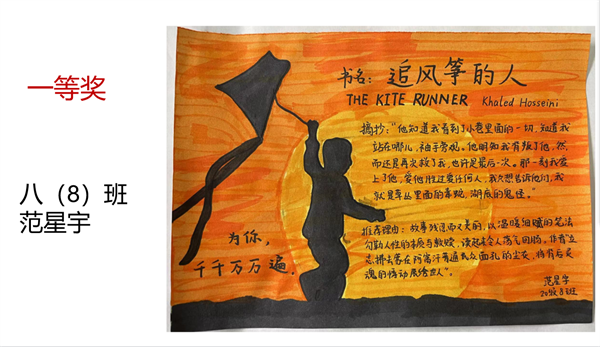 一等奖
八（8）班
范星宇
书名：追风筝的人
THE KITE RUNNER Khaled Hosseini
摘抄：“他知道我看到了小巷里面的一切，知道我
站在哪儿，袖手旁观。他明知我背叛了他，然
而还是再次救了我，也许是最后一次。那一刻我爱
上了他，爱他胜过爱任何人，我只想告诉他们，我
就是草丛里面的毒蛇，湖底的鬼怪。”
推荐理由：故事残忍而又美的，以温暖细腻的笔法
勾勒人性的本质与救赎，读起来令人荡气回肠。作者立
志拂去蒙在阿富汗普通民众面孔的尘灰，将背后灵
魂的悸动展给世人”。
为你，
千千万万遍．
范星宇
8班